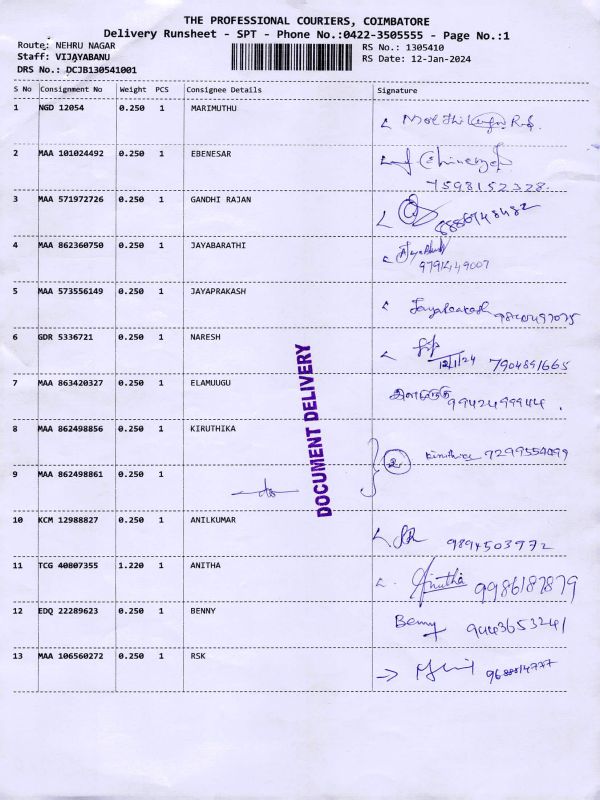 THE PROFESSIONAL COURIERS, COIMBATORE
Delivery Runsheet - SPT - Phone No.:0422-3505555 - Page No.:1
Route: NEHRU NAGAR RS No.: 1305410
Staff: VIJAYABANU RS Date: 12-Jan-2024
DRS No.: DCJB130541001
S No Consignment No Weight PCS Consignee Details Signature
1 NGD 12054 0.250 1 MARIMUTHU
2 MAA 101024492 0.250 1 EBENESAR
7598152328
3 MAA 571972726 0.250 1 GANDHI RAJAN
4 MAA 862360750 0.250 1 JAYABARATHI
9791449007
5 MAA 573556149 0.250 1 JAYAPRAKASH Jayaprakash 9840497075
6 GDR 5336721 0.250 1 NARESH
12/1/24 7904891665
7 MAA 863420327 0.250 1 ELAMUUGU
9942499944
8 MAA 862498856 0.250 1 KIRUTHIKA 2 Kiruthika 7299554099
9 MAA 862498861 0.250 1
10 KCM 12988827 0.250 1 ANILKUMAR
9894503972
11 TCG 40807355 1.220 1 ANITHA Anitha 9986187879
12 EDQ 22289623 0.250 1 BENNY Benny 9443653241
13 MAA 106560272 0.250 1 RSK
DOCUMENT DELIVERY